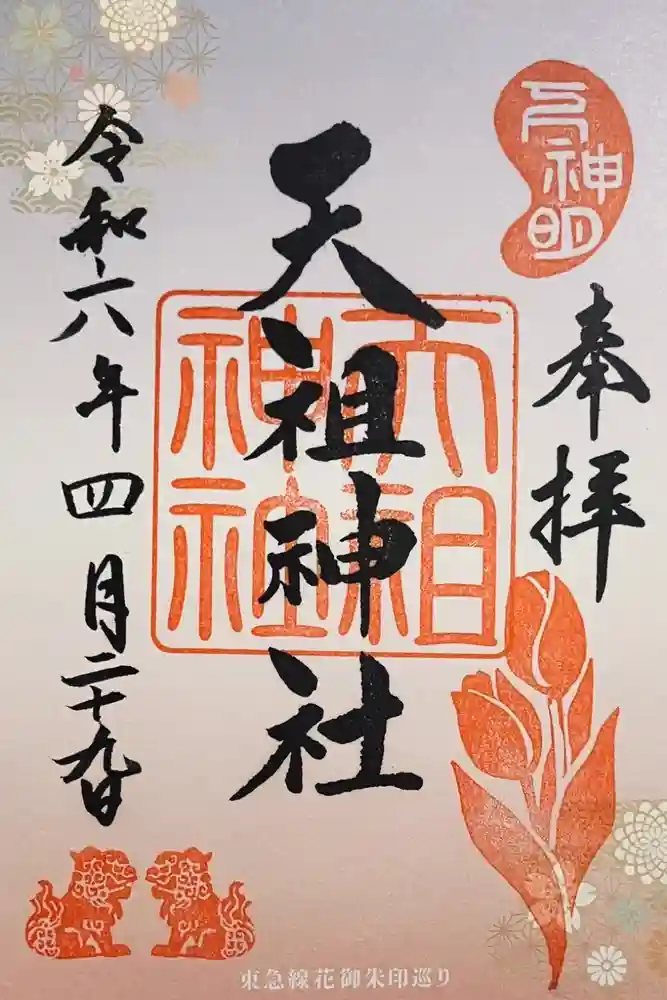 元神明
奉拝
天祖神社
天祖神社
令和六年四月二十九日
東急線花御朱印巡り